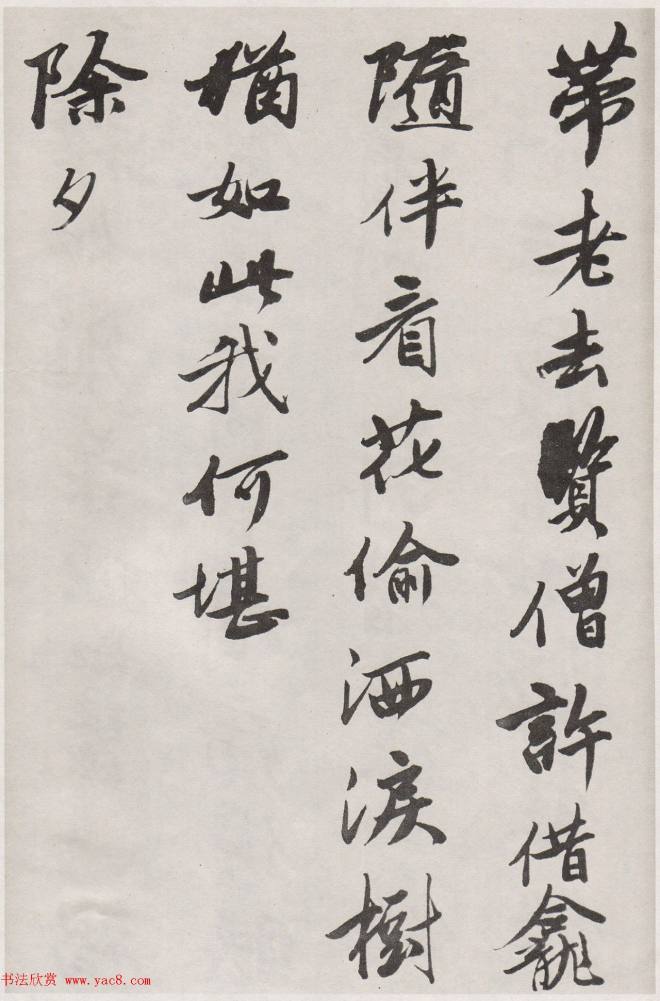 帶老去賢僧許借龕
隨伴看花偷洒淚樹
猶如此我何堪
除夕
书法欣赏 www.yac8.com